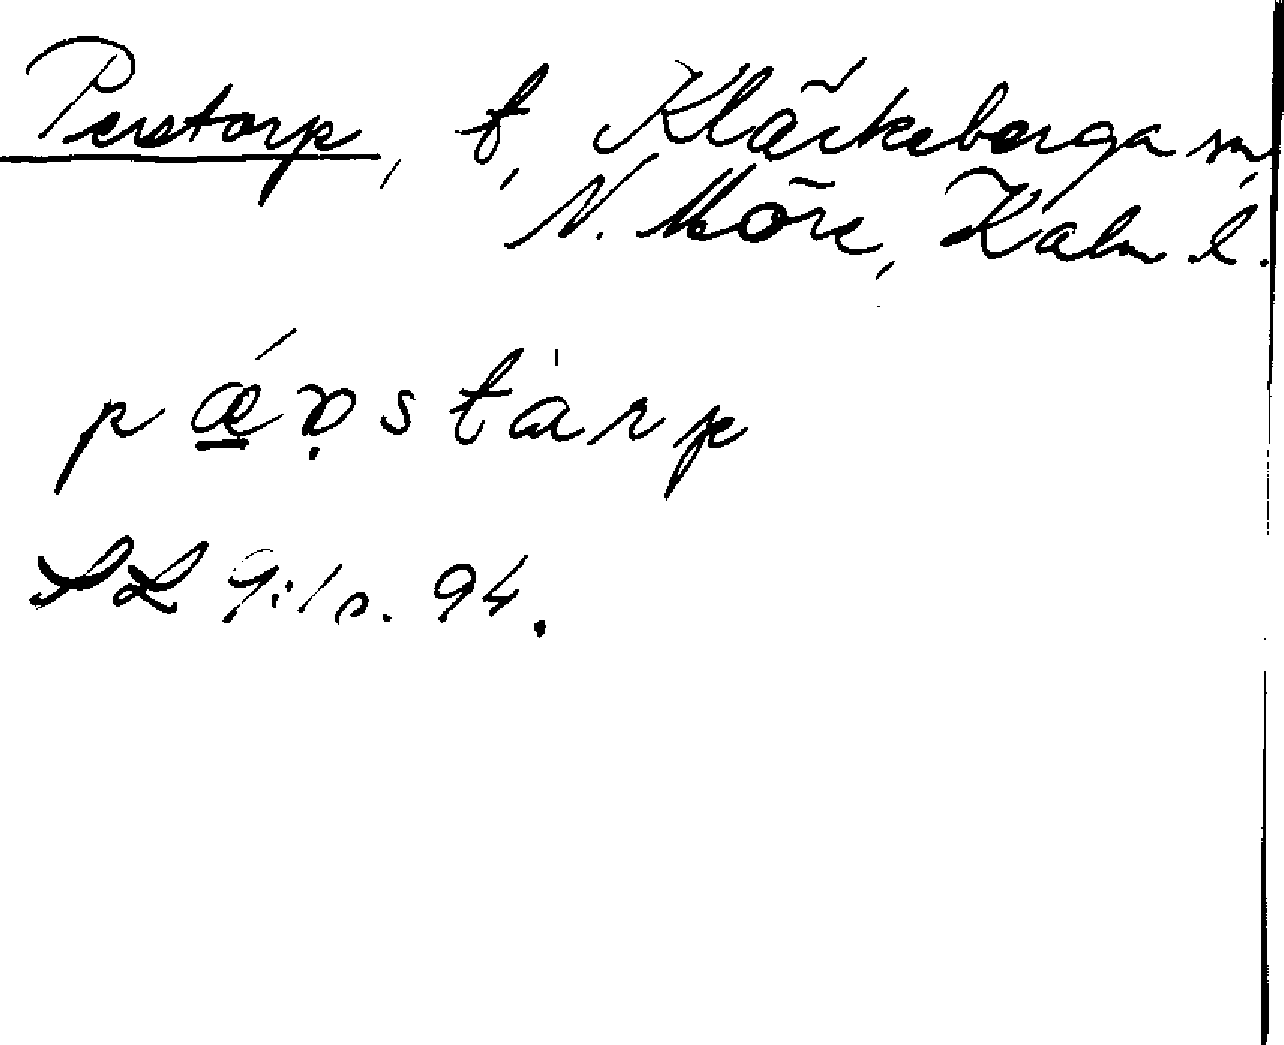 Perstorp, t, Kläckeberga sn,
N. Möre, Kalm l.
pǽ̱ꝛ̣stȧrp
SL 9:1 s. 94.